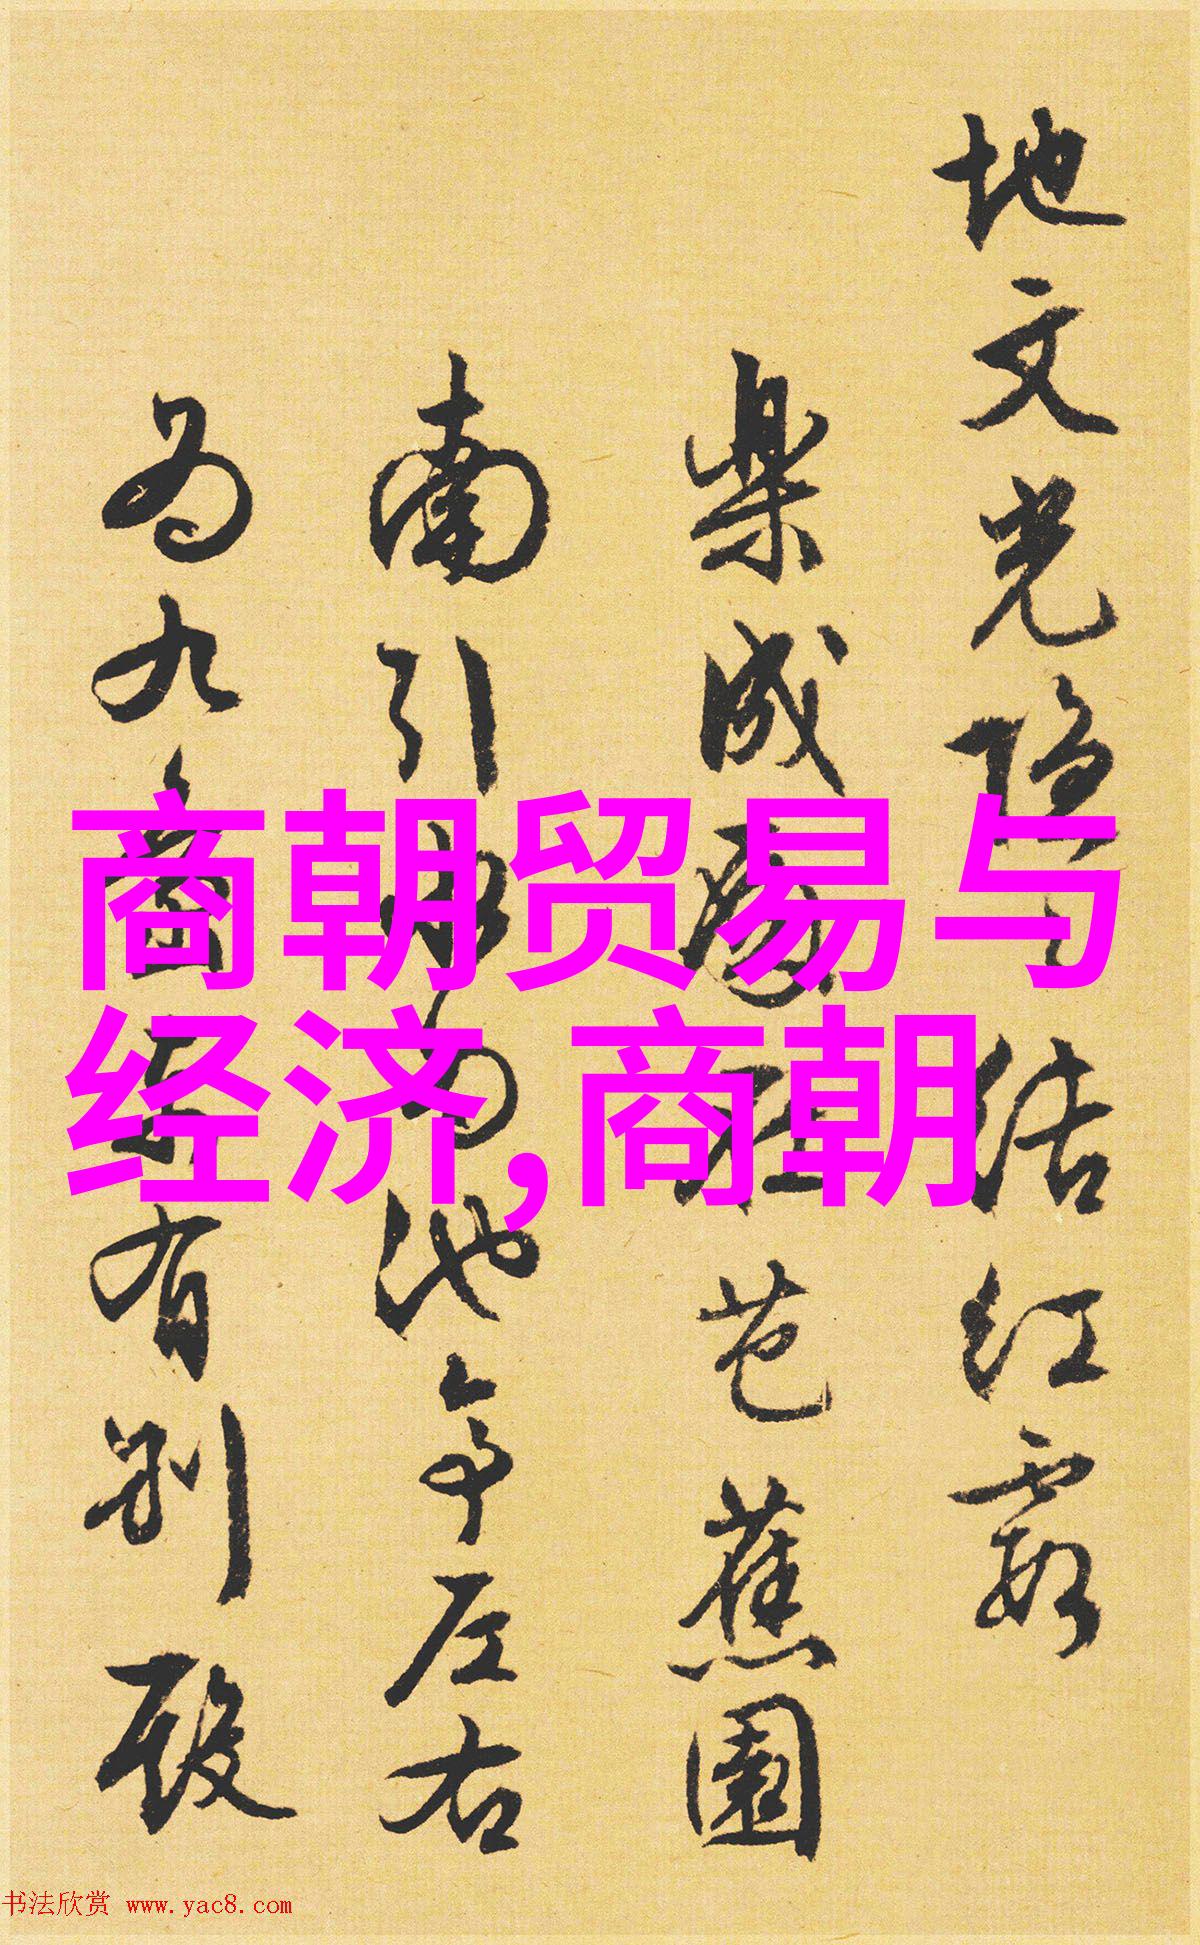 地文光隐结红霞
樂成芭蕉園
南引池亭左右
为九有别殿
商朝贸易与
经济,商朝
书法欣赏 www.yac8.com